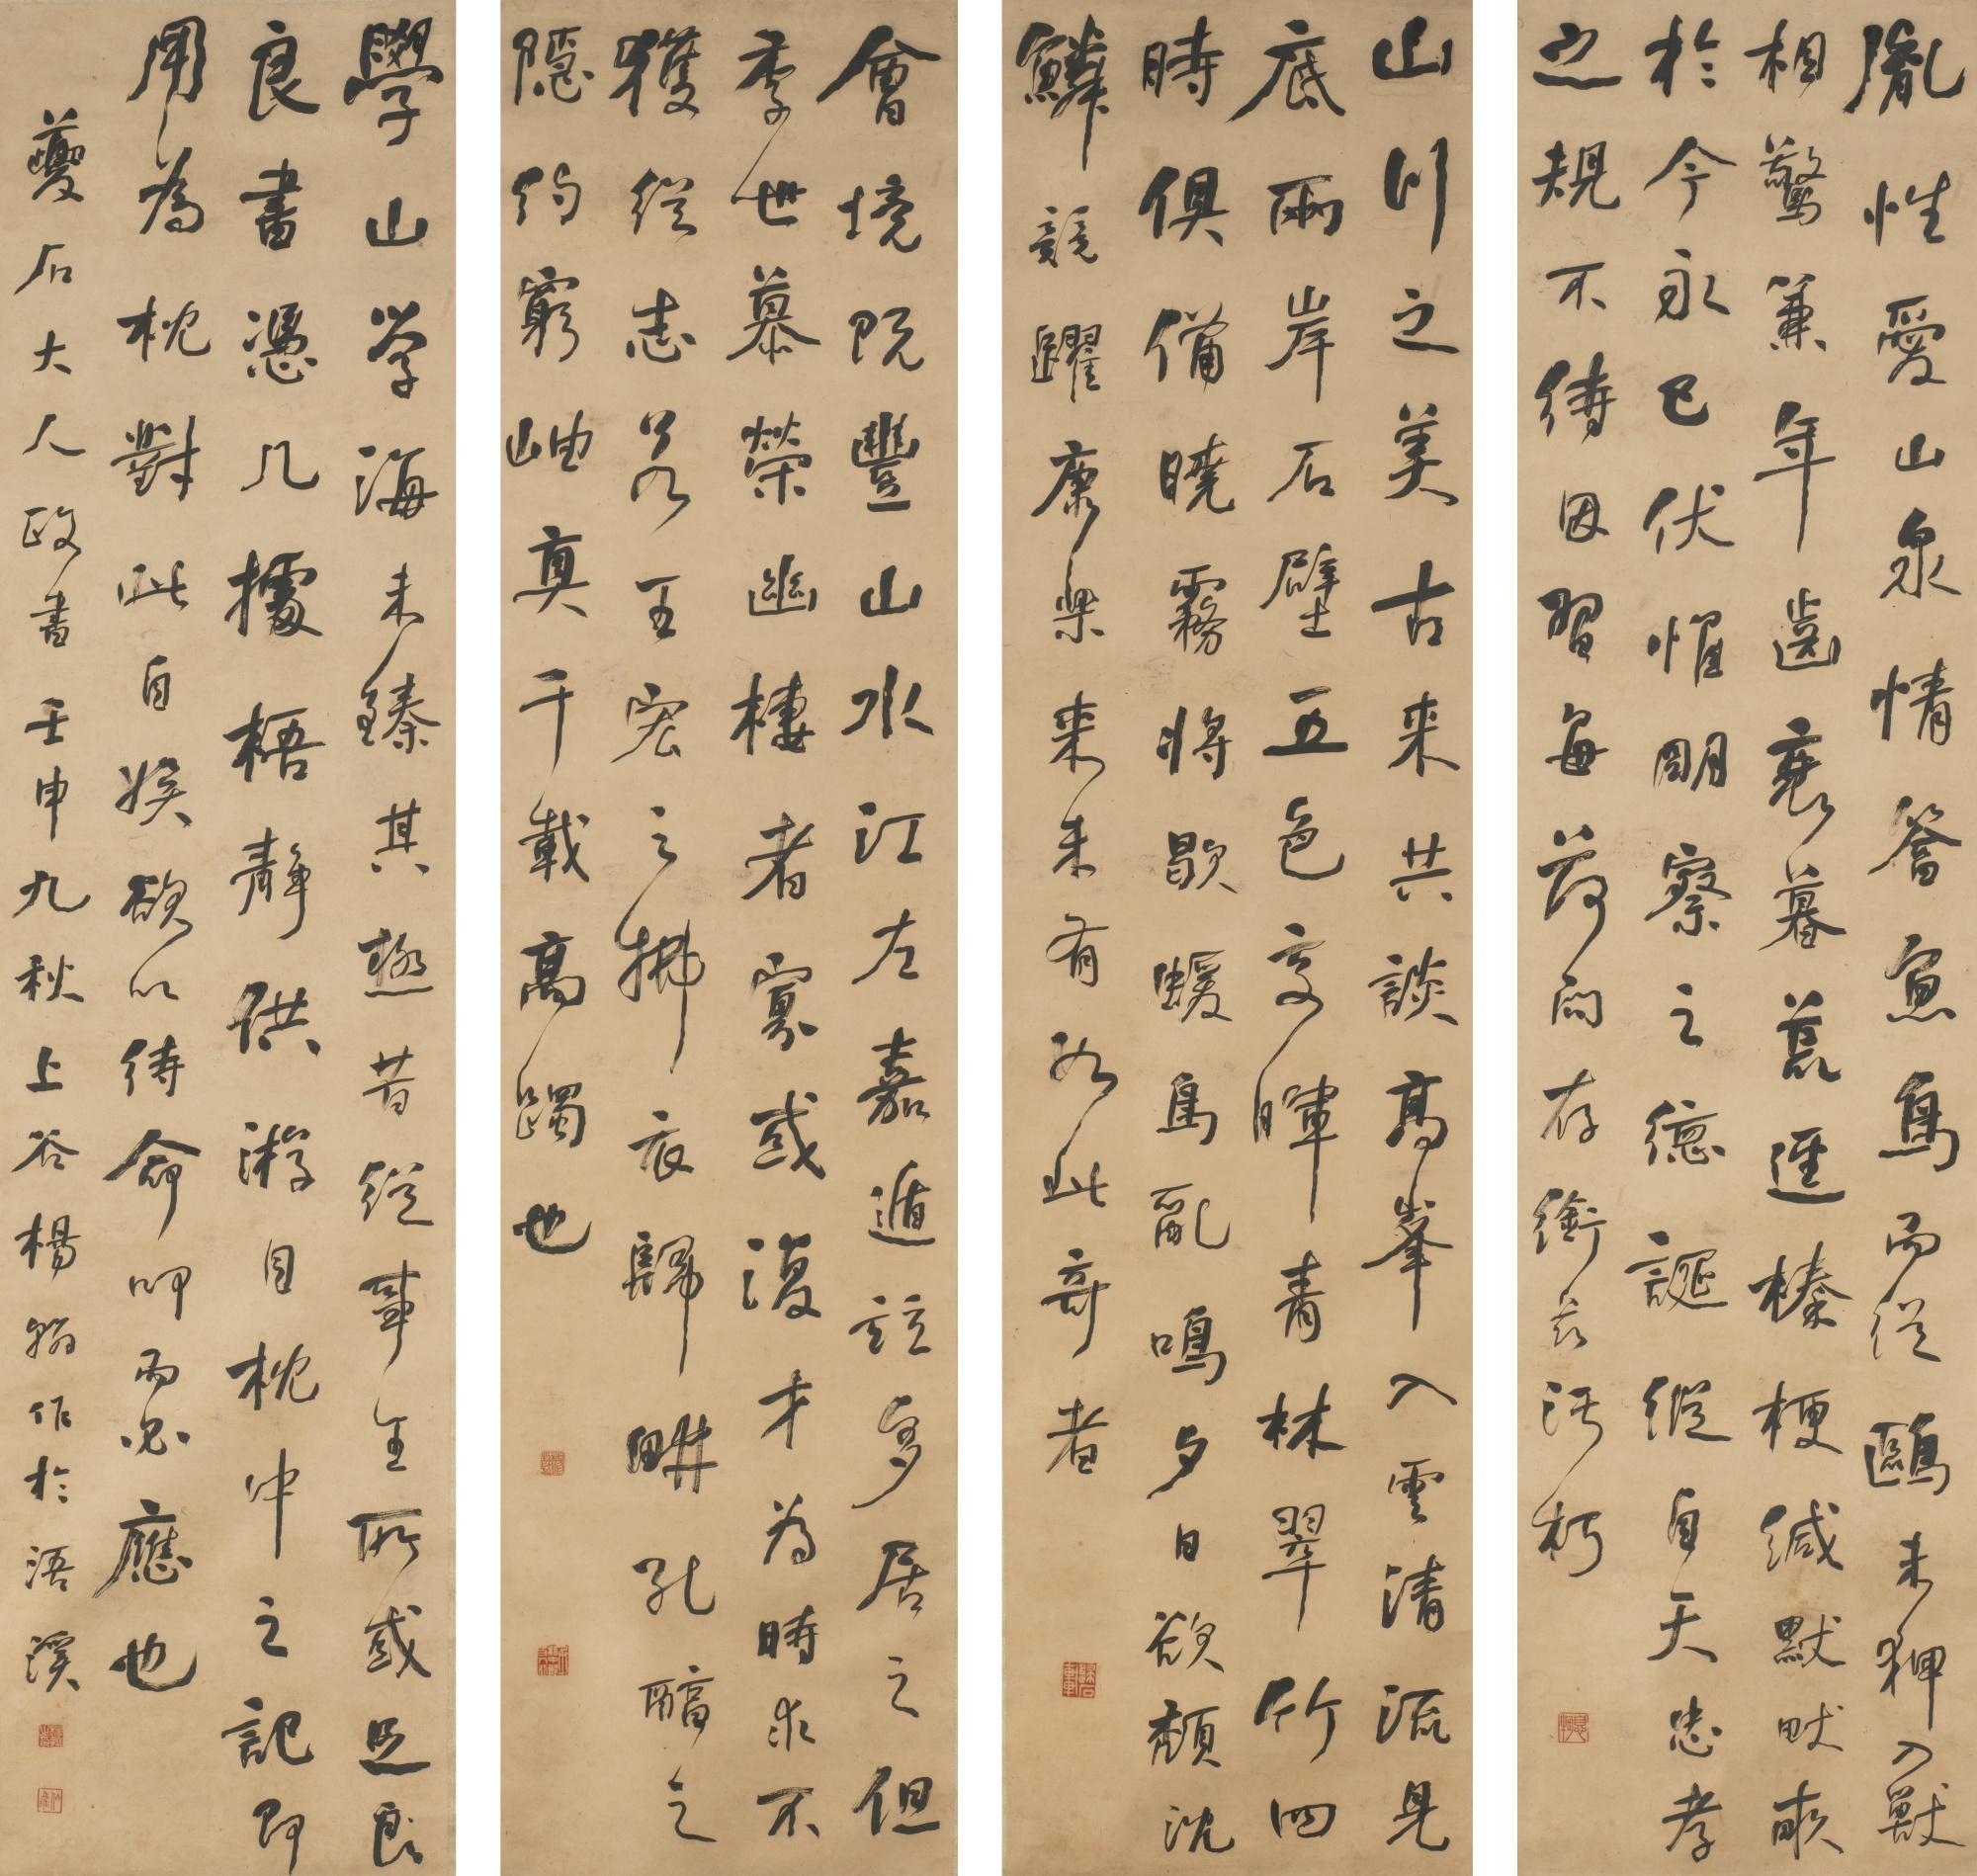 胤性愛山泉情答魚鳥而從鷗未狎入獸
相驚兼年齒衰暮荒逕榛梗緘默畎畝
於今永已伏惟明察之德誕縱自天忠孝
之規不待因習每荷而存銜茲污朽
山川之美古来共談高峯入雲清流見
底兩岸石壁五色交暉青林翠竹四
時俱備曉霧將歇蝯鳥亂鳴夕日欲頹沈
鱗競躍康樂来未有如此奇者
會境既豐山水江左嘉遁竝多居之但
季世慕榮幽棲者寡或復才為時求不
獲從志若王宏之拂衣歸畊孔醇之
隱約窮岫真千載高躅也
學山學海未臻其極昔從事至所或是良
良書憑几據梧靜供游目枕中之記即
用為枕對此自娛欲以待命叩而必應也
夔石大人政書壬申九秋上谷楊翰作於浯溪